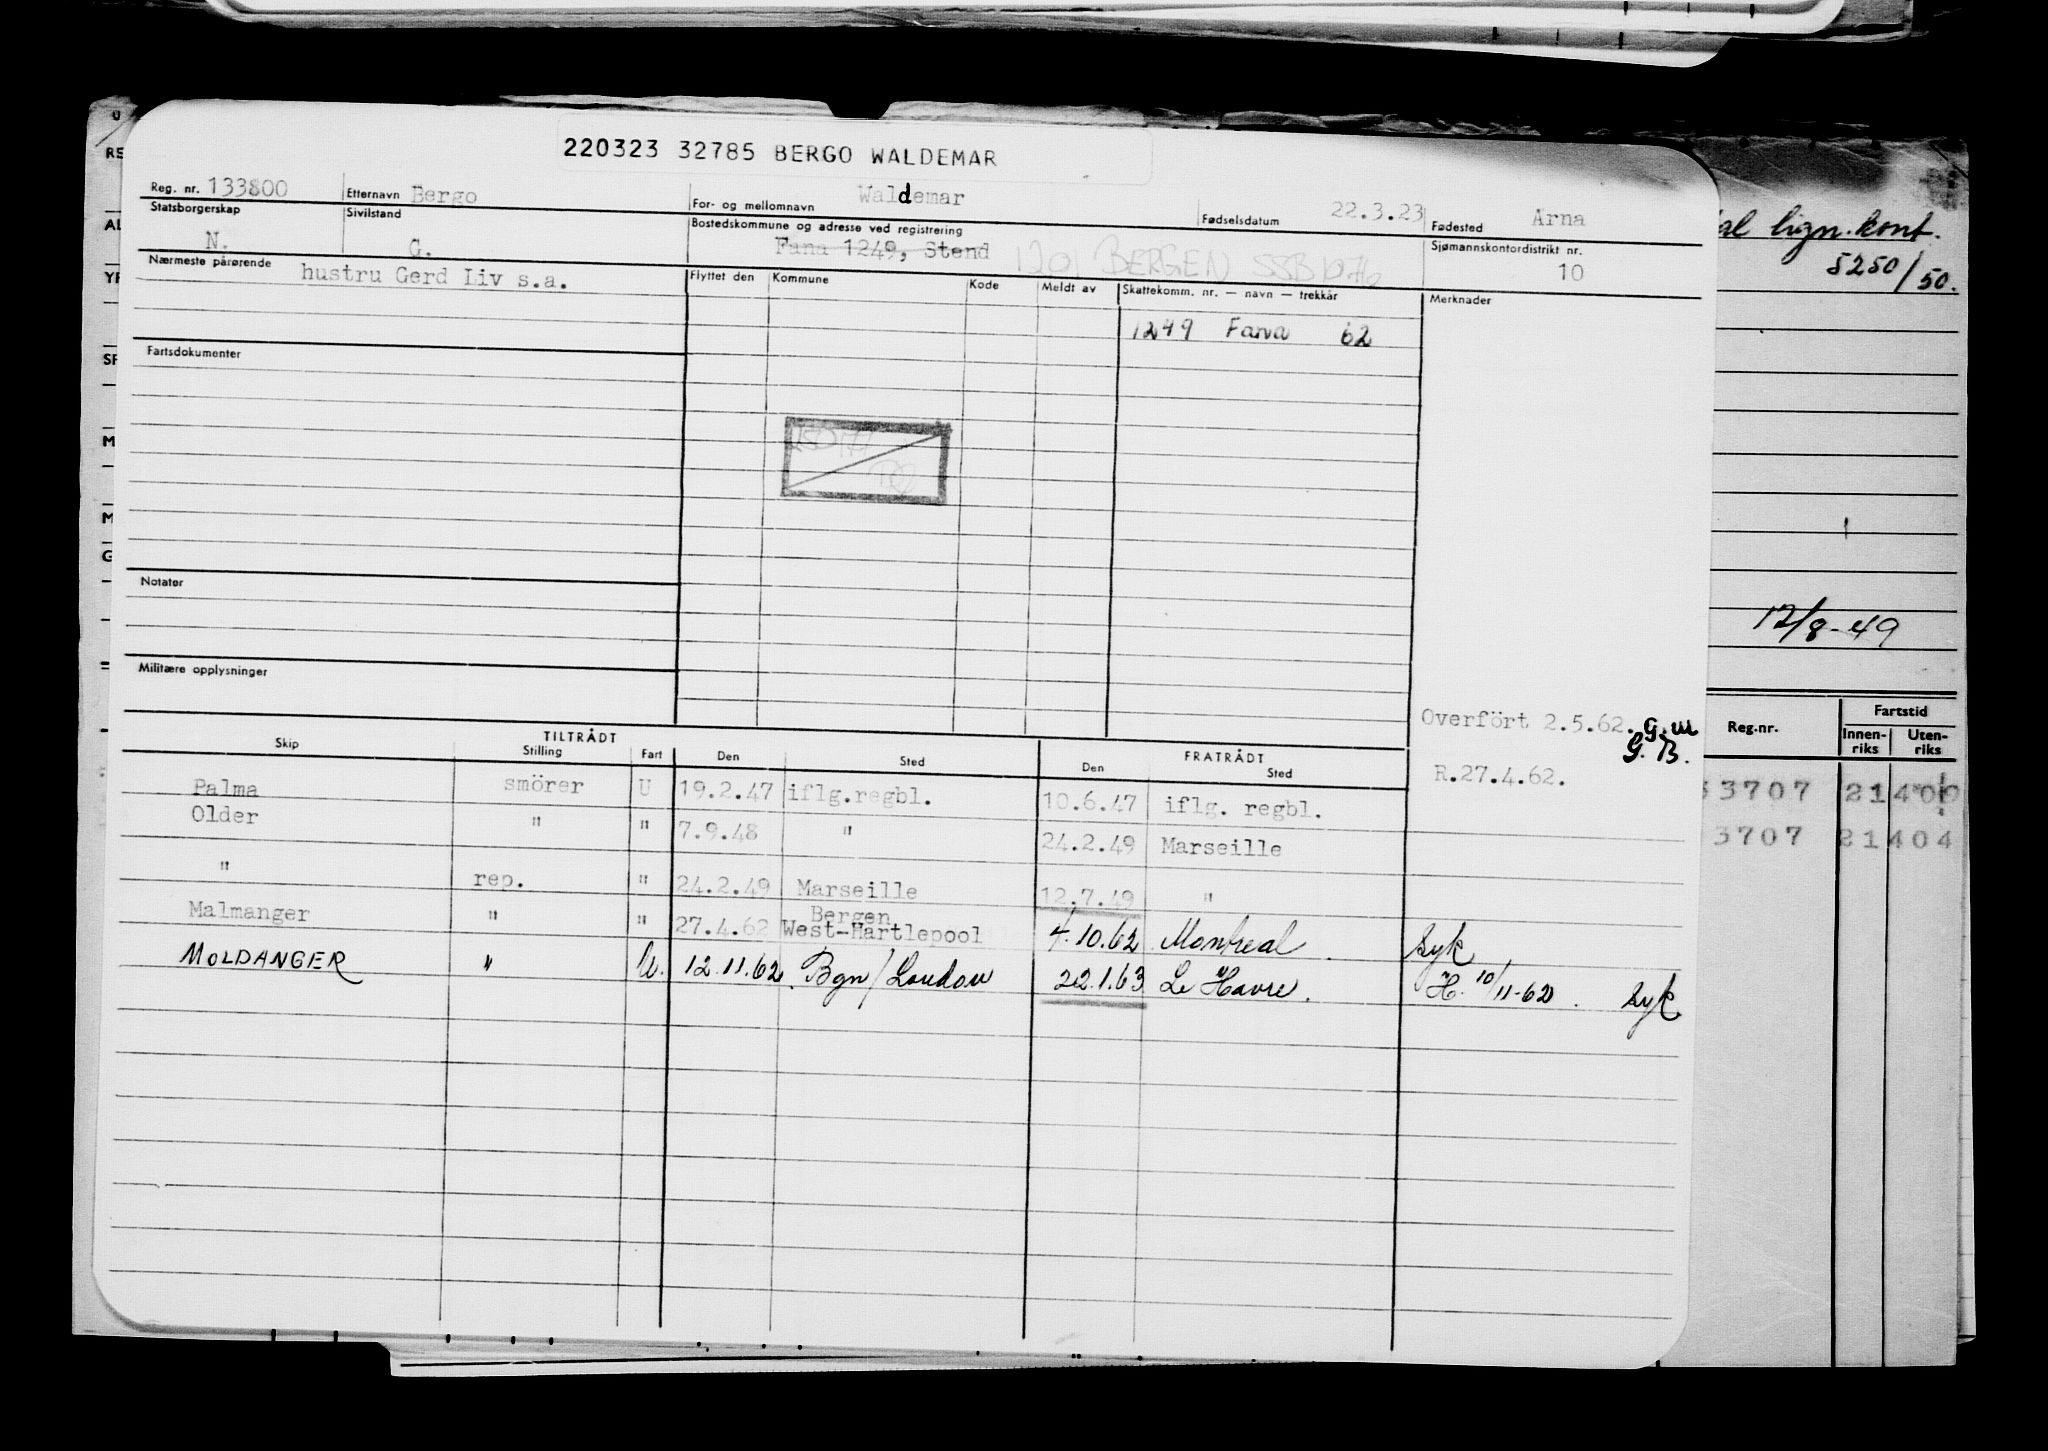 220323 32785 BERGO WALDEMAR
Reg. nr. 133800 Etternavn Bergo For- og mellomnavn Waldemar Fødselsdatum 22.3.23 Fødested Arna
Statsborgerskap N. Sivilstand G. Bostedskommune og adresse ved registrering Fana 1249, Stend 1201 BERGEN Sjømannskontordistrikt nr. 10
Nærmeste pårørende hustru Gerd Liv s.a.
Flyttet den Kommune Kode Meldt av Skattekomm. nr. — navn — trekkår Merknader
1249 Fana 62
Fartsdokumenter
Notater
Militære opplysninger
Overfört 2.5.62. G.M
G.B.
R.27.4.62.
TILTRÅDT FRATRÅDT
Skip Stilling Fart Den Sted Den Sted
Palma smörer U 19.2.47 iflg.regbl. 10.6.47 iflg. regbl.
Older " " 7.9.48 " 24.2.49 Marseille
" rep. " 24.2.49 Marseille 12.7.49 "
Malmanger " " 27.4.62 Bergen
West-Hartlepool 4.10.62 Montreal. Syk
MOLDANGER " U. 12.11.62. Bgn/London 22.1.63 Le Havre. H. 10/11-62. Syk
lign.kont.
5250/50.
12/8-49
Reg.nr. Fartstid
Innen-riks Uten-riks
3707 21404